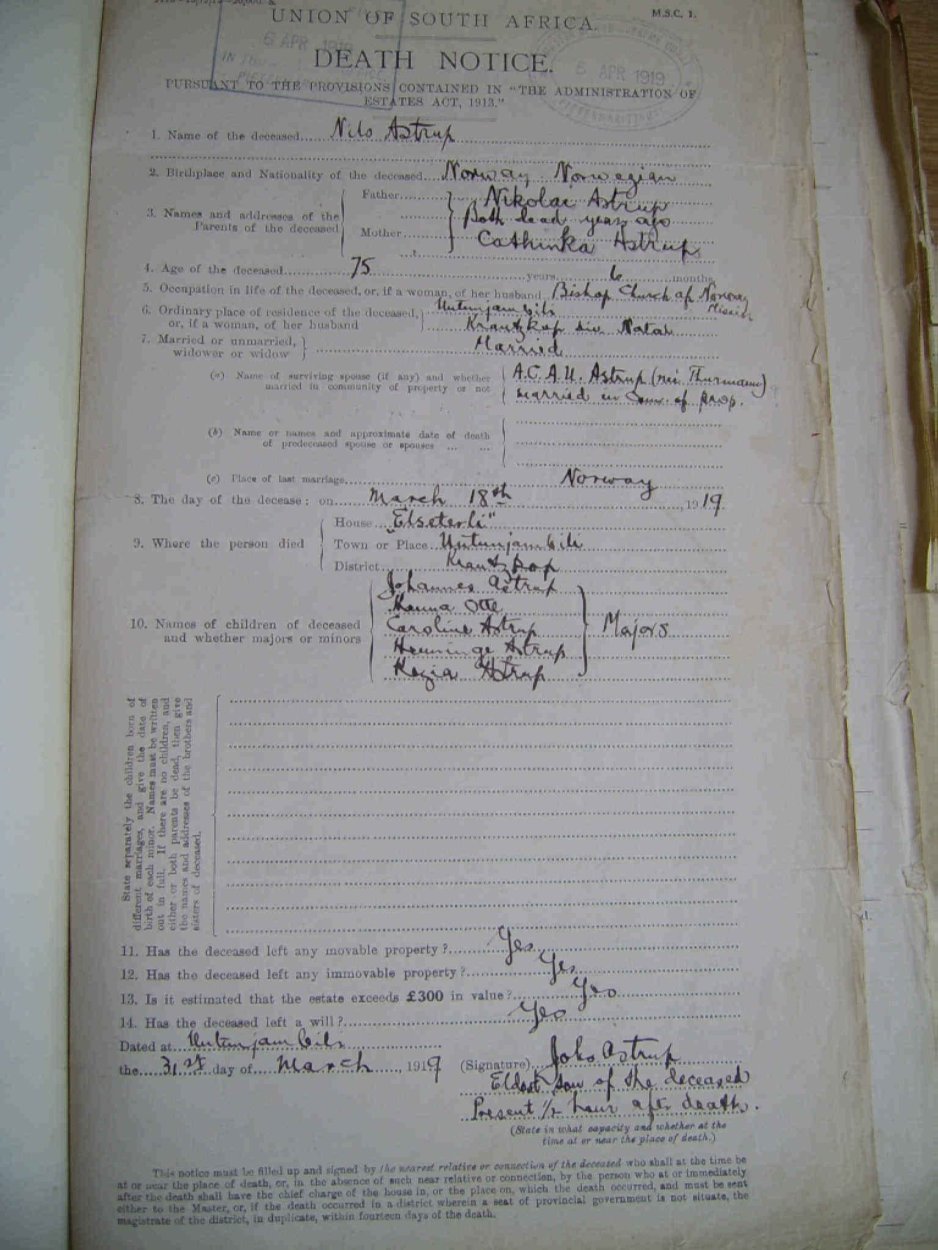 UNION OF SOUTH AFRICA.
M.S.C. 1.
6 APR 1919
6 APR 1919
DEATH NOTICE.
PURSUANT TO THE PROVISIONS CONTAINED IN "THE ADMINISTRATION OF
ESTATES ACT, 1913."
1. Name of the deceased Nils Astrup
2. Birthplace and Nationality of the deceased Norway Norwegian
3. Names and addresses of the Parents of the deceased
Father Nikolai Astrup
Both dead years ago
Mother Cathinka Astrup
4. Age of the deceased 75 years 6 months
5. Occupation in life of the deceased, or, if a woman, of her husband Bishop Church of Norway Mission
6. Ordinary place of residence of the deceased, Untunjambili
or, if a woman, of her husband Krantzkop div. Natal
7. Married or unmarried, widower or widow Married
(a) Name of surviving spouse (if any) and whether A.C.A.U. Astrup (née Thurmann)
married in community of property or not married in Com. of prop.
(b) Name or names and approximate date of death
of predeceased spouse or spouses ... ...
(c) Place of last marriage Norway
8. The day of the decease: on March 18th, 1919.
9. Where the person died
House "Elseterli"
Town or Place Untunjambili
District Krantzkop
10. Names of children of deceased
and whether majors or minors
Johannes Astrup
Hanna Otte
Caroline Astrup
Henninge Astrup
Kezia Astrup
Majors
State separately the children born of
different marriages, and give the date of
birth of each minor. Names must be written
out in full. If there are no children, and
either or both parents be dead, then give
the names and addresses of the brothers and
sisters of deceased.
11. Has the deceased left any movable property? Yes
12. Has the deceased left any immovable property? Yes
13. Is it estimated that the estate exceeds £300 in value? Yes
14. Has the deceased left a will? Yes
Dated at Untunjambili
the 31st day of March, 1919
(Signature) Johs Astrup
Eldest Son of the deceased
Present 1/2 hour after death.
(State in what capacity and whether at the
time at or near the place of death.)
This notice must be filled up and signed by the nearest relative or connection of the deceased who shall at the time be
at or near the place of death, or, in the absence of such near relative or connection, by the person who at or immediately
after the death shall have the chief charge of the house in, or the place on, which the death occurred, and must be sent
either to the Master, or, if the death occurred in a district wherein a seat of provincial government is not situate, the
magistrate of the district, in duplicate, within fourteen days of the death.